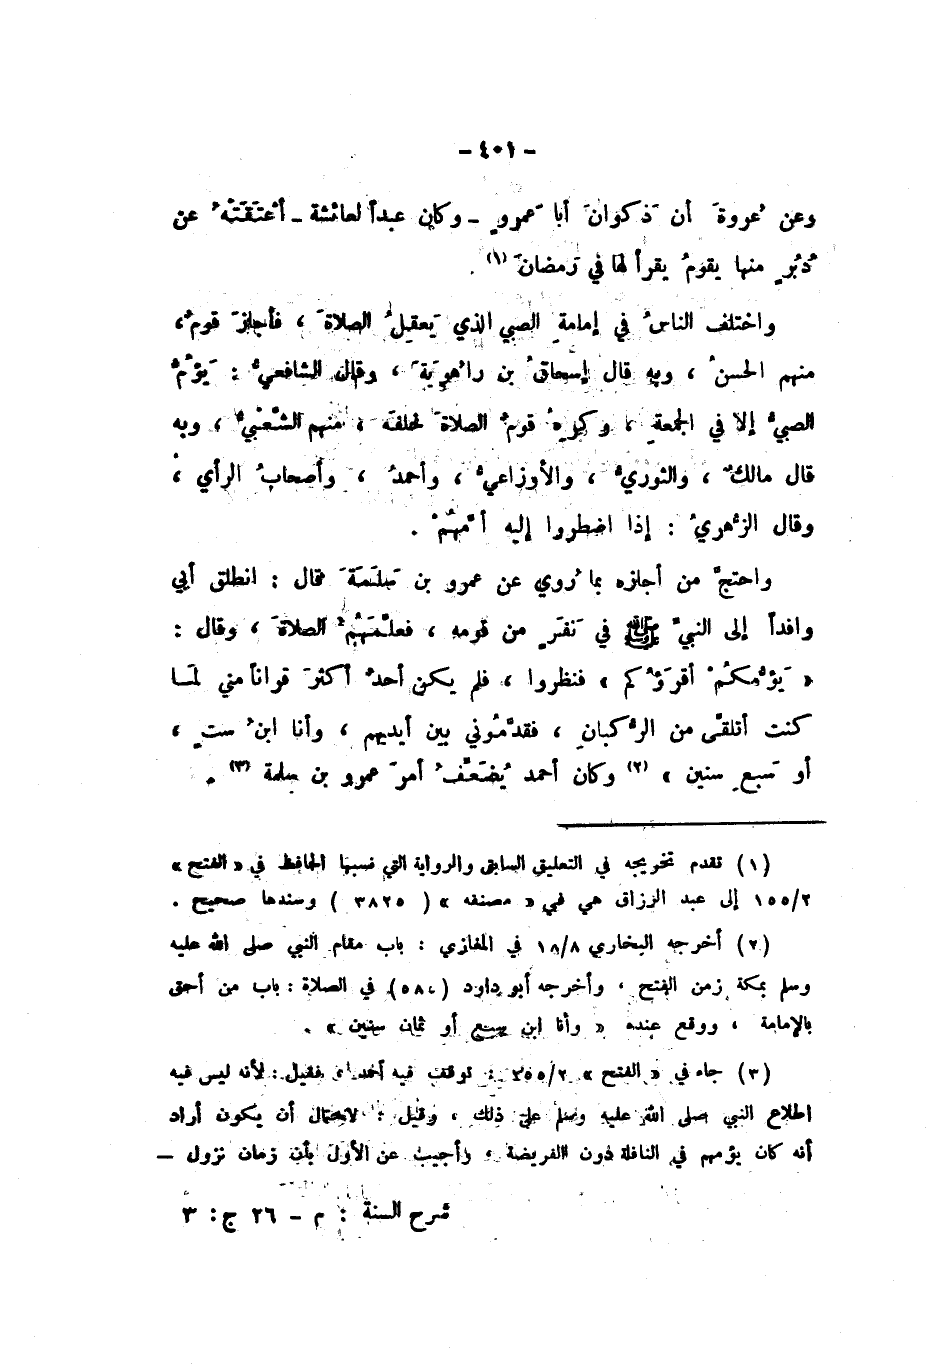 - ٤٠١ -
وعن عُروةَ أن ذَكوانَ أبا عَمروٍ - وكان عبداً لعائشة - أعْتَقَتْهُ عن
دُبُرٍ منها يقومُ يقرأ لها في رَمضانَ (١) .
واختلف الناسُ في إمامةِ الصبي الذي يَعقِلُ الصلاةَ ، فأجازَ قومٌ،
منهم الحسنُ ، وبهِ قال إسحاقُ بن راهُويَةَ ، وقال الشافعيُّ : يَؤُمُّ
الصبيُّ إلا في الجمعةِ ، وكَرِهَ قومٌ الصلاةَ خلفَه ، منهم الشَّعْبيُّ ، وبه
قال مالكٌ ، والثوريُّ ، والأوزاعيُّ ، وأحمدُ ، وأصحابُ الرأي ،
وقال الزُّهريُّ : إذا اضطروا إليه أمَّهُمْ .
واحتجَّ من أجازه بما رُوي عن عمرو بن سَلَمَةَ قال : انطلق أبي
وافداً إلى النبيِّ ﷺ في نَفَرٍ من قومه ، فعلَّمَهُمُ الصلاةَ ، وقال :
« يَؤُمُّكُمْ أقرَؤُكم » فنظروا ، فلم يكن أحدٌ أكثرَ قرآناً مني لمَا
كنت أتلقَّى من الرُّكبانِ ، فقدَّمُوني بين أيديهم ، وأنا ابنُ ستٍ ،
أو سَبعِ سنين » (٢) وكان أحمد يُضَعِّفُ أمرَ عمرو بن سلمة (٣) .
(١) تقدم تخريجه في التعليق السابق والرواية التي نسبها الحافظ في « الفتح »
١٥٥/٢ إلى عبد الرزاق هي في « مصنفه » ( ٣٨٢٥ ) وسندها صحيح .
(٢) أخرجه البخاري ١٨/٨ في المغازي : باب مقام النبي صلى الله عليه
وسلم بمكة زمن الفتح ، وأخرجه أبو داود (٥٨٥) في الصلاة : باب من أحق
بالإمامة ، ووقع عنده « وأنا ابن سبع أو ثمان سنين » .
(٣) جاء في « الفتح » ١٥٥/٢ : توقف فيه أحمد ، فقيل : لأنه ليس فيه
اطلاع النبي صلى الله عليه وسلم على ذلك ، وقيل : لاحتمال أن يكون أراد
أنه كان يؤمهم في النافلة دون الفريضة ، وأجيب عن الأول بأن زمان نزول -
شرح السنة : م - ٢٦ ج : ٣